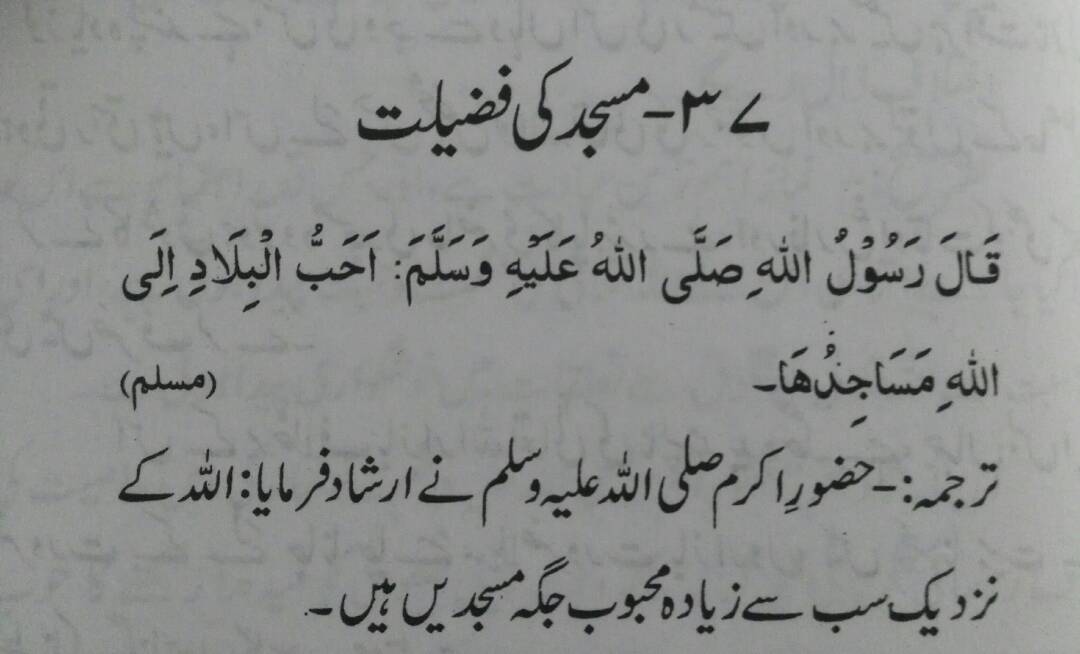 ۳۷-مسجد کی فضیلت
قَالَ رَسُوْلُ اللهِ صَلَّى اللهُ عَلَيْهِ وَسَلَّمَ: اَحَبُّ الْبِلَادِ اِلَى
اللهِ مَسَاجِدُهَا۔ (مسلم)
ترجمہ:- حضورِ اکرم صلی اللہ علیہ وسلم نے ارشاد فرمایا: اللہ کے
نزدیک سب سے زیادہ محبوب جگہ مسجدیں ہیں۔